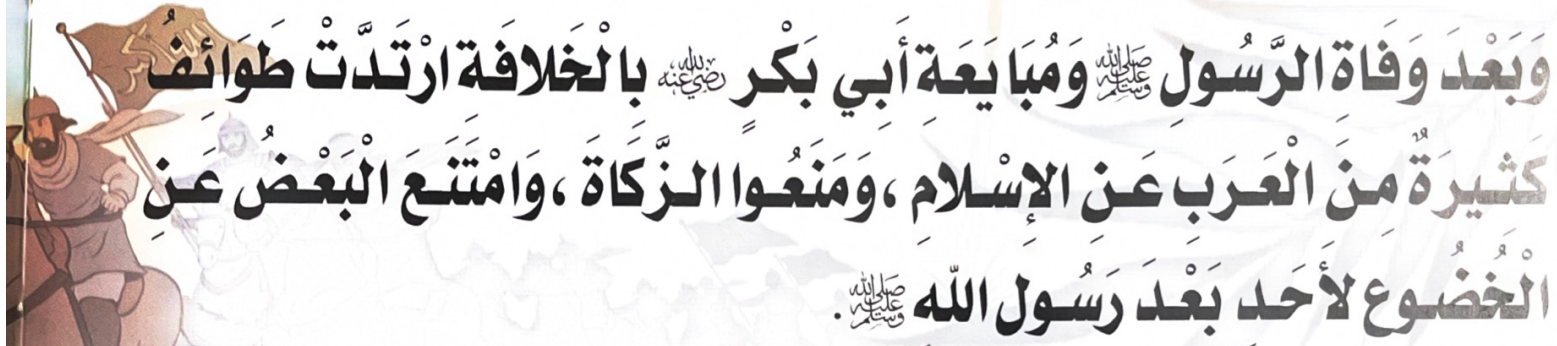 وَبَعْدَ وَفَاةِ الرَّسُولِ ﷺ وَمُبَايَعَةِ أَبِي بَكْرٍ رضي الله عنه بِالْخَلَافَةِ ارْتَدَّتْ طَوَائِفُ
كَثِيرَةٌ مِنَ الْعَرَبِ عَنِ الإِسْلامِ ، وَمَنَعُوا الزَّكَاةَ ، وَامْتَنَعَ الْبَعْضُ عَنِ
الْخُضُوعِ لأَحَدٍ بَعْدَ رَسُولِ اللَّهِ ﷺ .